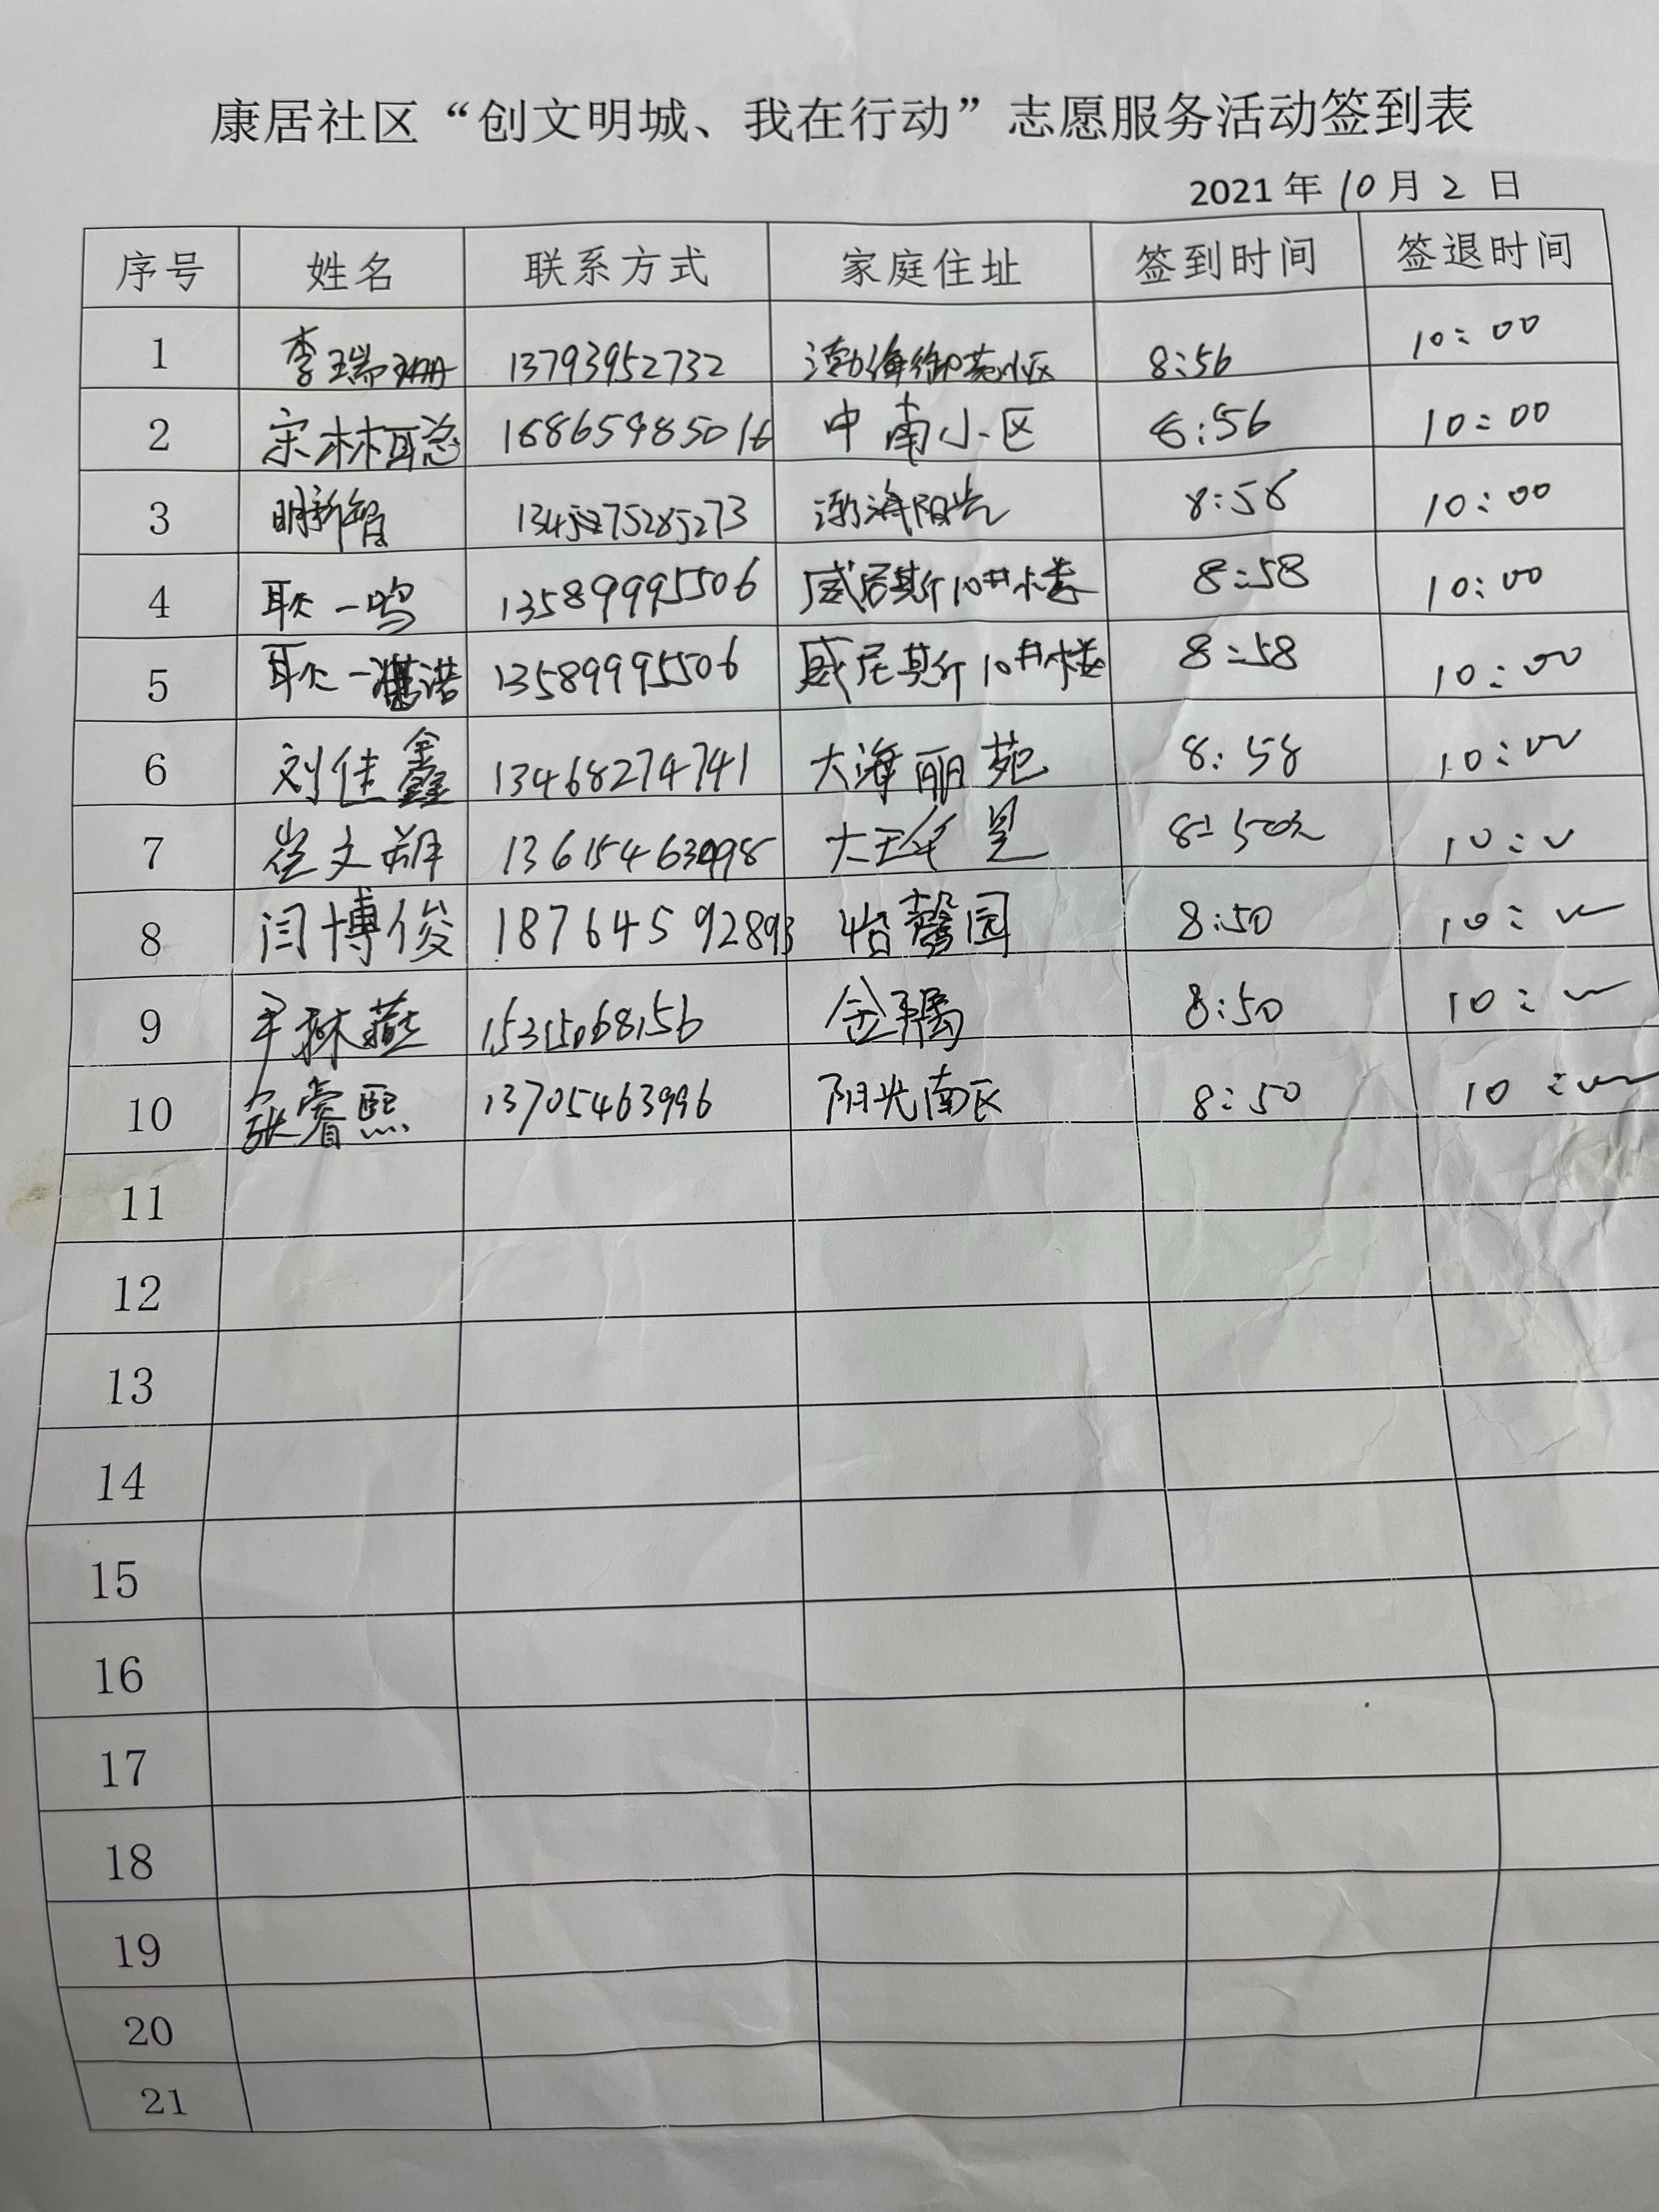 康居社区“创文明城、我在行动”志愿服务活动签到表
2021年10月2日
序号 姓名 联系方式 家庭住址 签到时间 签退时间
1 李瑞珊 13793952732 渤海御苑小区 8:56 10:00
2 宋林聪 18865485016 中南小区 8:56 10:00
3 明新智 渤海阳光 8:58 10:00
4 耿一鸣 13589995506 威尼斯10#楼 8:58 10:00
5 耿一诺 13589995506 威尼斯10#楼 8:58 10:00
6 刘佳鑫 13468274741 大海丽苑 8:58 10:00
7 崔文 8:50 10:00
8 闫博俊 18764592893 怡馨园 8:50 10:00
9 尹林燕 15315068156 金 8:50 10:00
10 张睿熙 13705463996 阳光南区 8:50 10:00
11
12
13
14
15
16
17
18
19
20
21